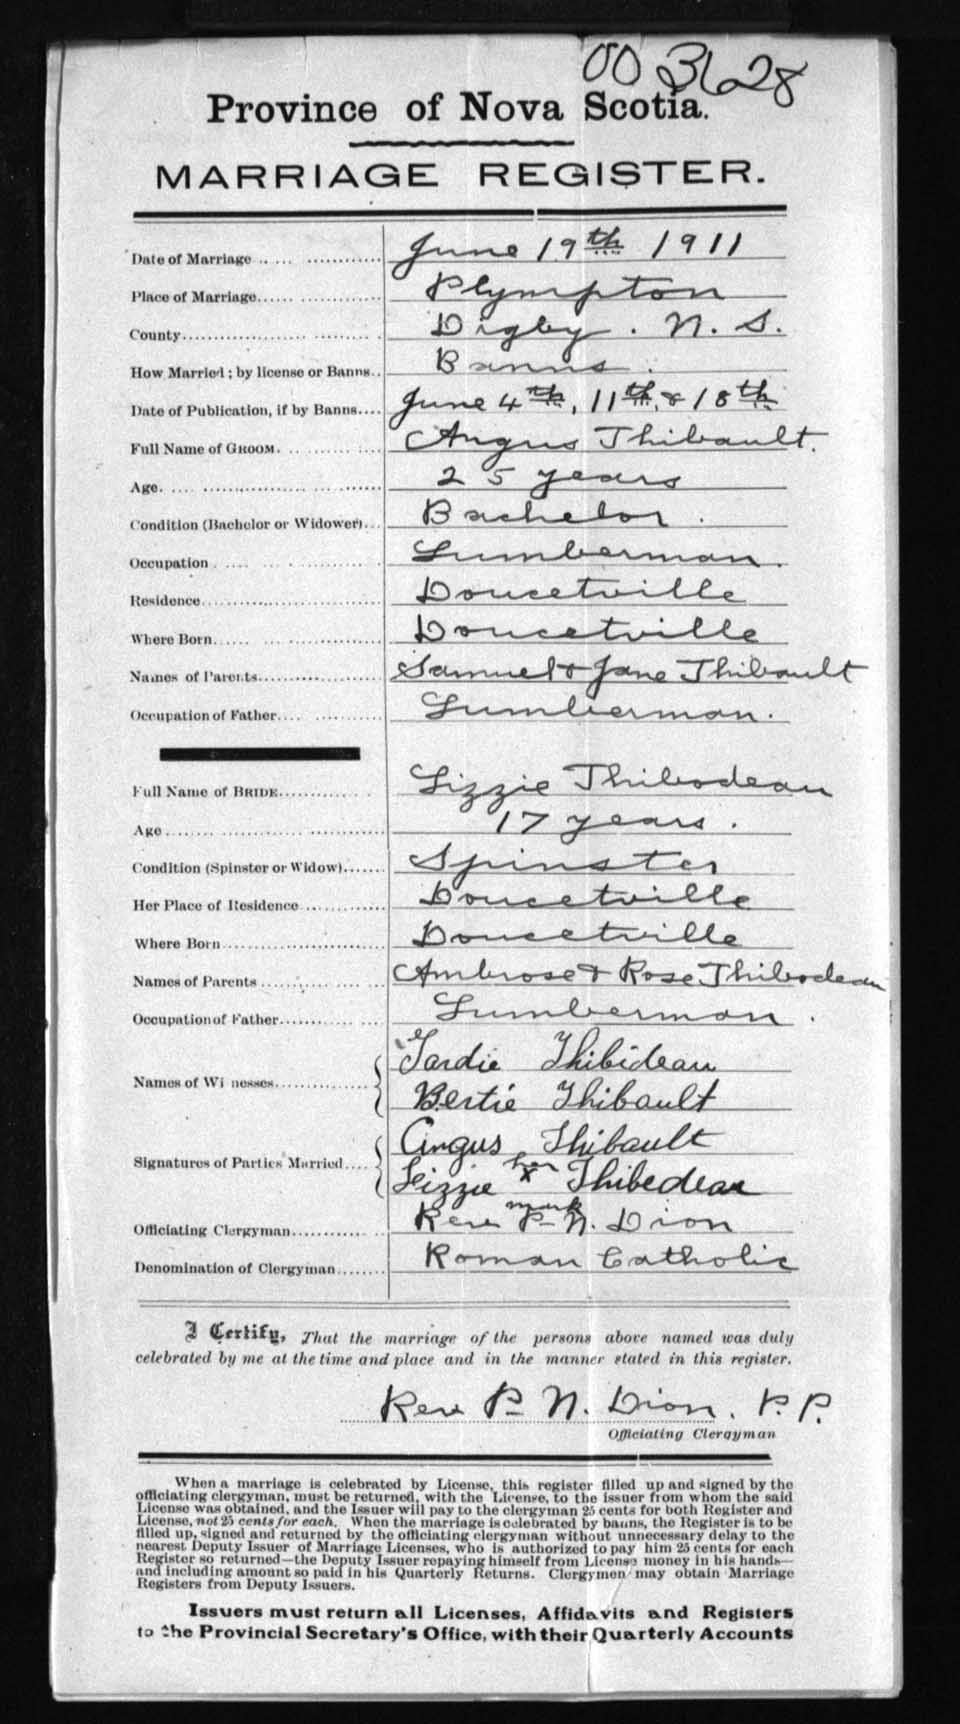 003628
Province of Nova Scotia.
MARRIAGE REGISTER.
Date of Marriage .. ..... ............ June 19th 1911
Place of Marriage...... .................. Plympton
County....................... ............ Digby. N. S.
How Married; by license or Banns.. Banns.
Date of Publication, if by Banns.... June 4th, 11th, & 18th
Full Name of GROOM. . .......... .... Angus Thibault.
Age. .... ................... ....... 25 years
Condition (Bachelor or Widower)... Bachelor.
Occupation . .... .. ............... Lumberman.
Residence................................ Doucetville
Where Born...... ................... Doucetville
Names of Parents..................... Samuel & Jane Thibault
Occupation of Father.... ............ Lumberman.
Full Name of BRIDE............... Lizzie Thibodeau
Age ......................... ............. 17 years.
Condition (Spinster or Widow)....... Spinster
Her Place of Residence ............. Doucetville
Where Born........................... Doucetville
Names of Parents ............ .... ... Ambrose & Rose Thibodeau
Occupation of Father........... .... Lumberman.
Names of Wi nesses............... Tardie Thibideau
Bertie Thibault
Signatures of Parties Married.... Angus Thibault
Lizzie her x mark Thibedeau
Officiating Clergyman............ ... Rev P. N. Dion
Denomination of Clergyman........ Roman Catholic
I Certify, That the marriage of the persons above named was duly
celebrated by me at the time and place and in the manner stated in this register.
Rev P. N. Dion, P. P.
Officiating Clergyman
When a marriage is celebrated by License, this register filled up and signed by the
officiating clergyman, must be returned, with the License, to the issuer from whom the said
License was obtained, and the Issuer will pay to the clergyman 25 cents for both Register and
License, not 25 cents for each. When the marriage is celebrated by banns, the Register is to be
filled up, signed and returned by the officiating clergyman without unnecessary delay to the
nearest Deputy Issuer of Marriage Licenses, who is authorized to pay him 25 cents for each
Register so returned—the Deputy Issuer repaying himself from License money in his hands—
and including amount so paid in his Quarterly Returns. Clergymen may obtain Marriage
Registers from Deputy Issuers.
Issuers must return all Licenses, Affidavits and Registers
to the Provincial Secretary's Office, with their Quarterly Accounts